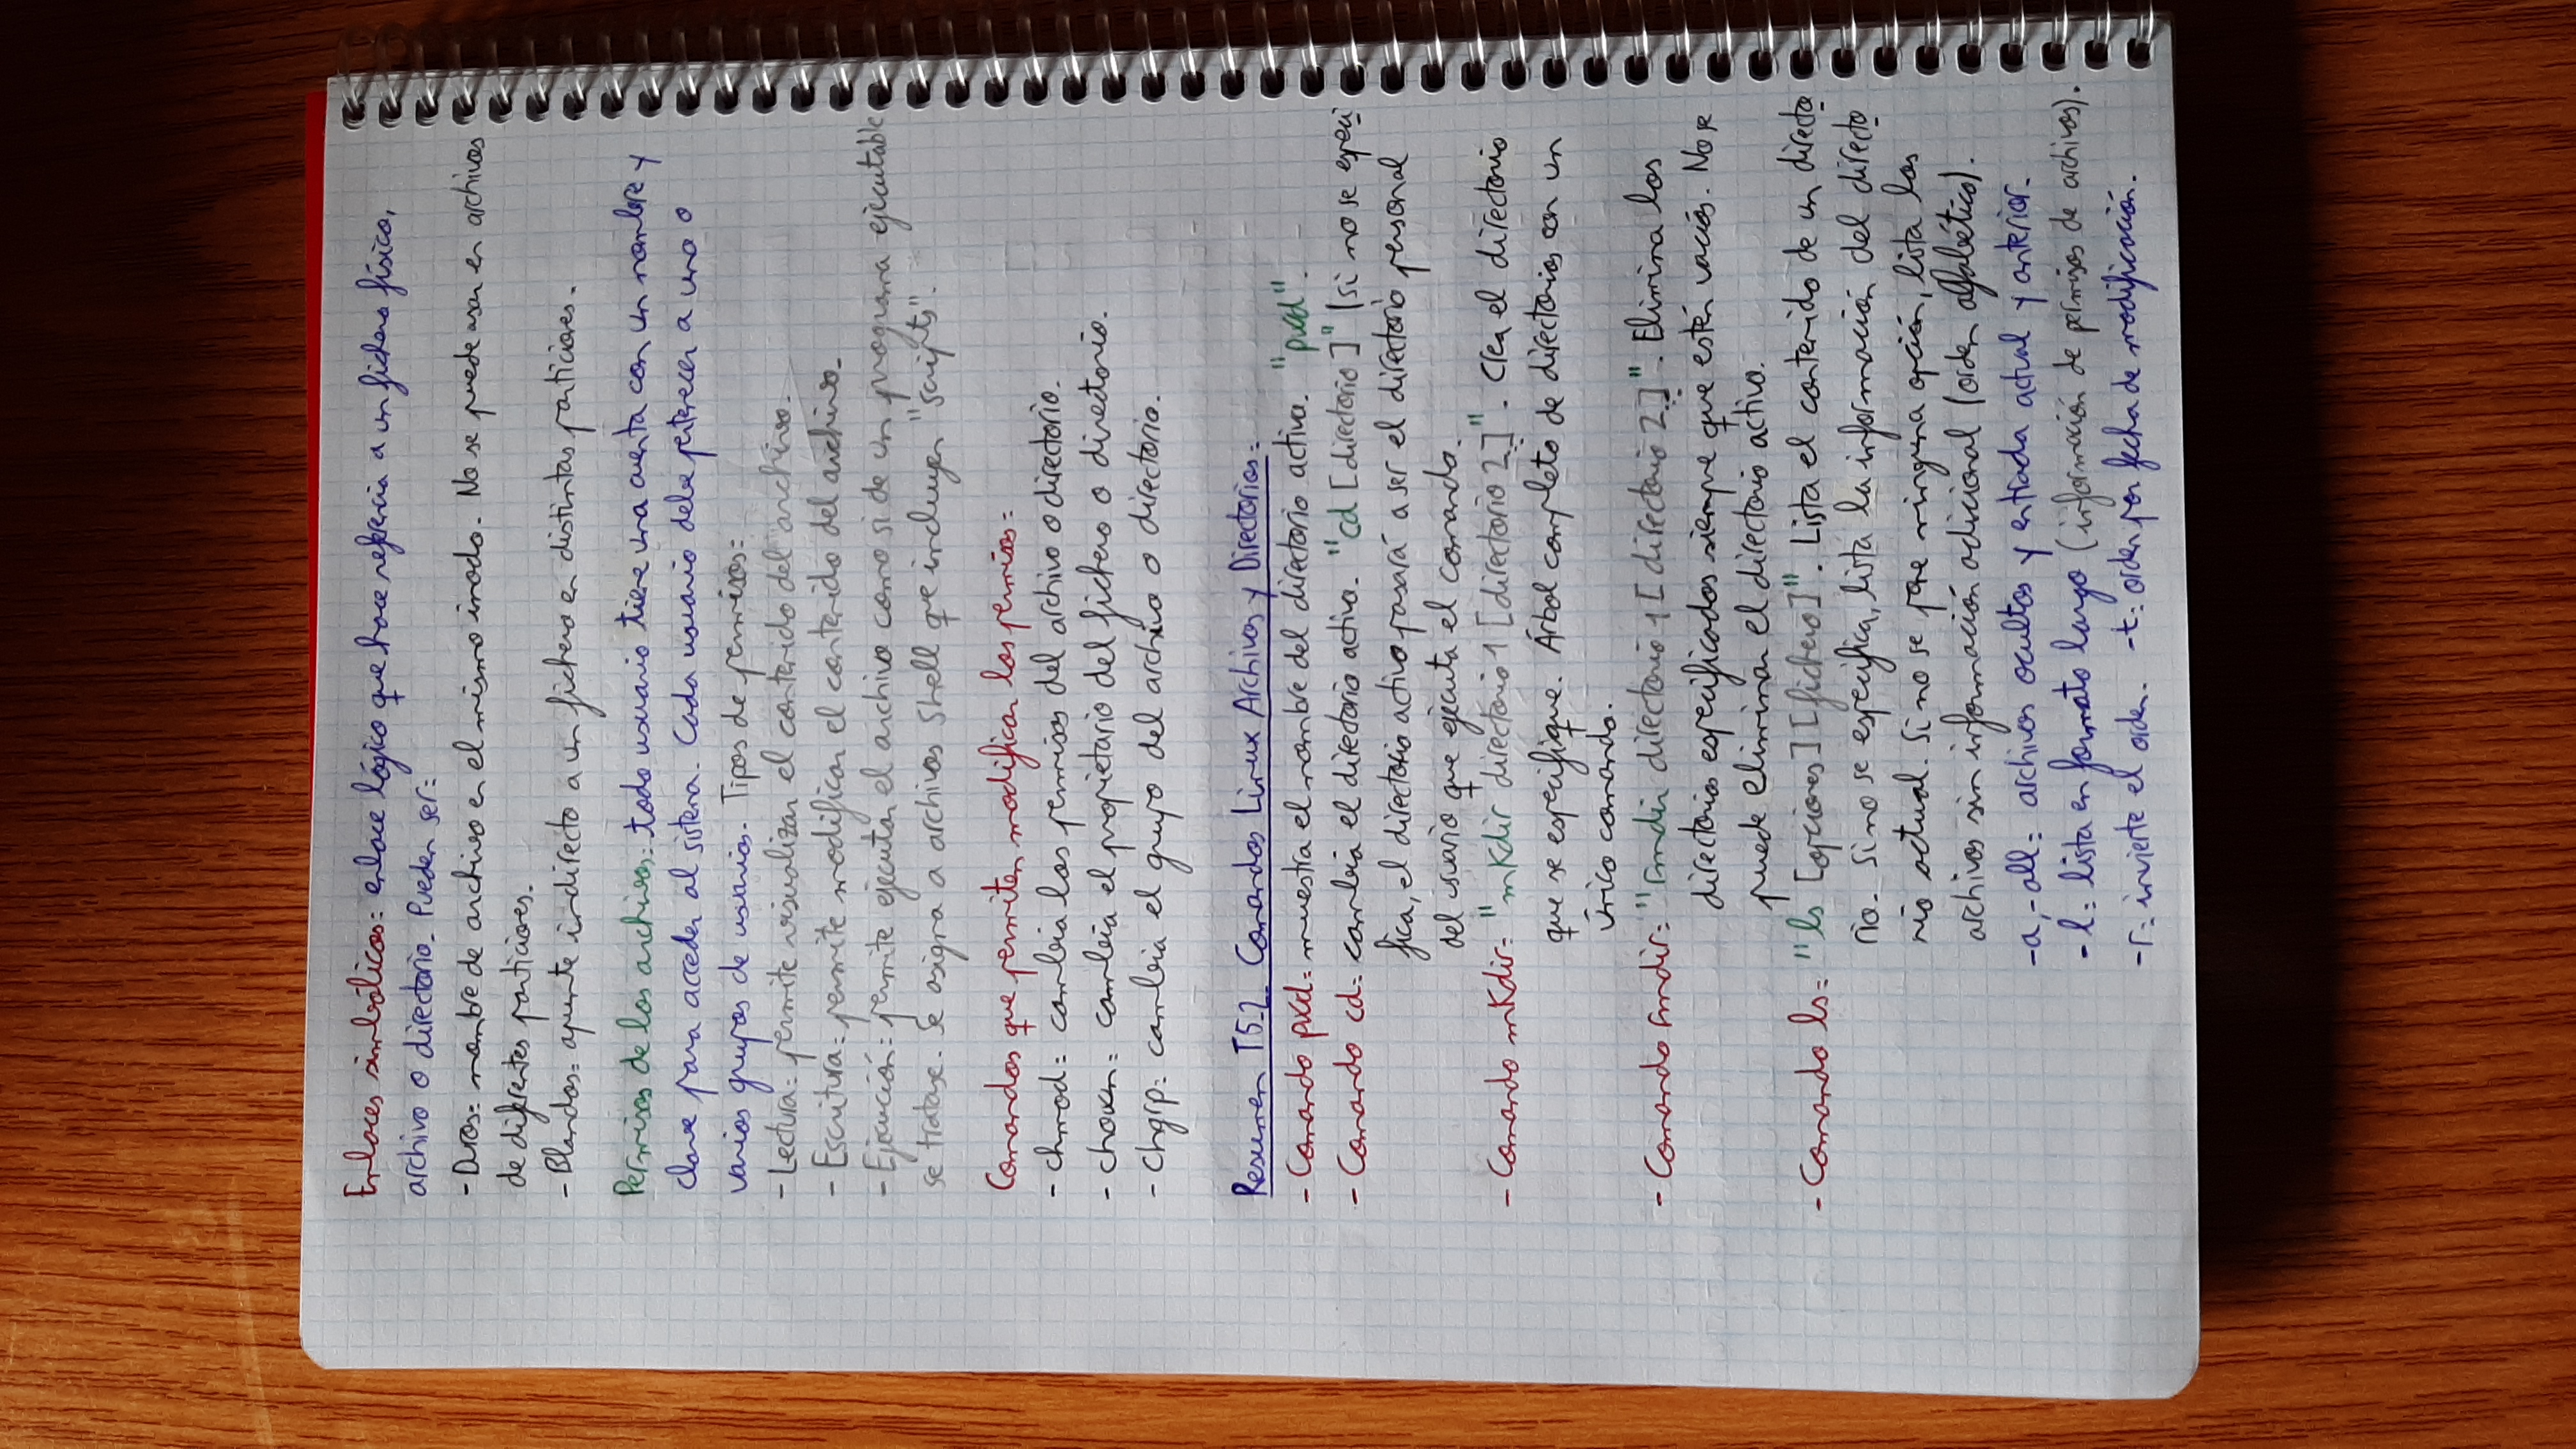 Enlaces simbólicos: enlace lógico que hace referencia a un fichero físico,
archivo o directorio. Pueden ser:
- Duros: nombre de archivo en el mismo inodo. No se puede usar en archivos
de diferentes particiones.
- Blandos: apunte indirecto a un fichero en distintas particiones.
Permisos de los archivos: todo usuario tiene una cuenta con un nombre y
clave para acceder al sistema. Cada usuario debe pertenecer a uno o
varios grupos de usuarios. Tipos de permisos:
- Lectura: permite visualizar el contenido del archivo.
- Escritura: permite modificar el contenido del archivo.
- Ejecución: permite ejecutar el archivo como si de un programa ejecutable
se tratase. Se asigna a archivos Shell que incluyen "scripts".
Comandos que permiten modificar los permisos:
- chmod: cambia los permisos del archivo o directorio.
- chown: cambia el propietario del fichero o directorio.
- chgrp: cambia el grupo del archivo o directorio.
Resumen T5.2. Comandos Linux Archivos y Directorios:
- Comando pwd: muestra el nombre del directorio activo. "pwd".
- Comando cd: cambia el directorio activo. "cd [directorio]" (si no se especi
fica, el directorio activo pasará a ser el directorio personal
del usuario que ejecuta el comando.
- Comando mkdir: "mkdir directorio 1 [directorio 2...]". Crea el directorio
que se especifique. Árbol completo de directorios con un
único comando.
- Comando rmdir: "rmdir directorio 1 [directorio 2...]". Elimina los
directorios especificados siempre que estén vacíos. No se
puede eliminar el directorio activo.
- Comando ls: "ls [opciones] [fichero]". Lista el contenido de un directo
rio. Si no se especifica, lista la información del directo
rio actual. Si no se pone ninguna opción, lista los
archivos sin información adicional (orden alfabético).
-a,-all: archivos ocultos y entrada actual y anterior.
-l: lista en formato largo (información de permisos de archivos).
-r: invierte el orden. -t: orden por fecha de modificación.